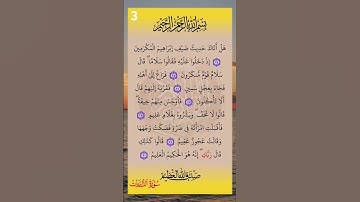 3
بسم الله الرحمن الرحيم
هَلْ أَتَاكَ حَدِيثُ ضَيْفِ إِبْرَاهِيمَ الْمُكْرَمِينَ
إِذْ دَخَلُوا عَلَيْهِ فَقَالُوا سَلَامًا قَالَ
سَلَامٌ قَوْمٌ مُنكَرُونَ فَرَاغَ إِلَى أَهْلِهِ
فَجَاءَ بِعِجْلٍ سَمِينٍ فَقَرَّبَهُ إِلَيْهِمْ قَالَ
أَلَا تَأْكُلُونَ فَأَوْجَسَ مِنْهُمْ خِيفَةً
قَالُوا لَا تَخَفْ وَبَشَّرُوهُ بِغُلَامٍ عَلِيمٍ
فَأَقْبَلَتِ امْرَأَتُهُ فِي صَرَّةٍ فَصَكَّتْ وَجْهَهَا
وَقَالَتْ عَجُوزٌ عَقِيمٌ قَالُوا كَذَلِكِ
قَالَ رَبُّكِ إِنَّهُ هُوَ الْحَكِيمُ الْعَلِيمُ
صدق الله العظيم
سورة الذاريات